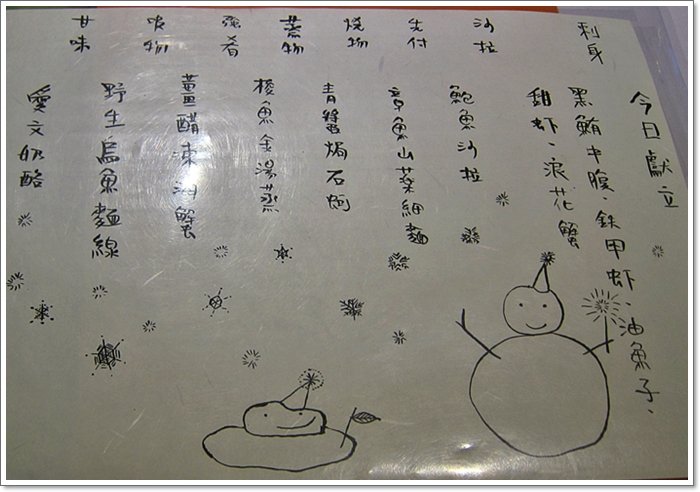 今日獻立
刺身
黑鮪中腹、鉄甲虾、油魚子、
甜虾、浪花蟹
沙拉
鮑魚沙拉
先付
章魚山藥細麵
燒物
青醬焗石蚵
蒸物
梭魚金湯蒸
強肴
薑醋凍沙蟹
吸物
野生烏魚麵線
甘味
愛文奶酪